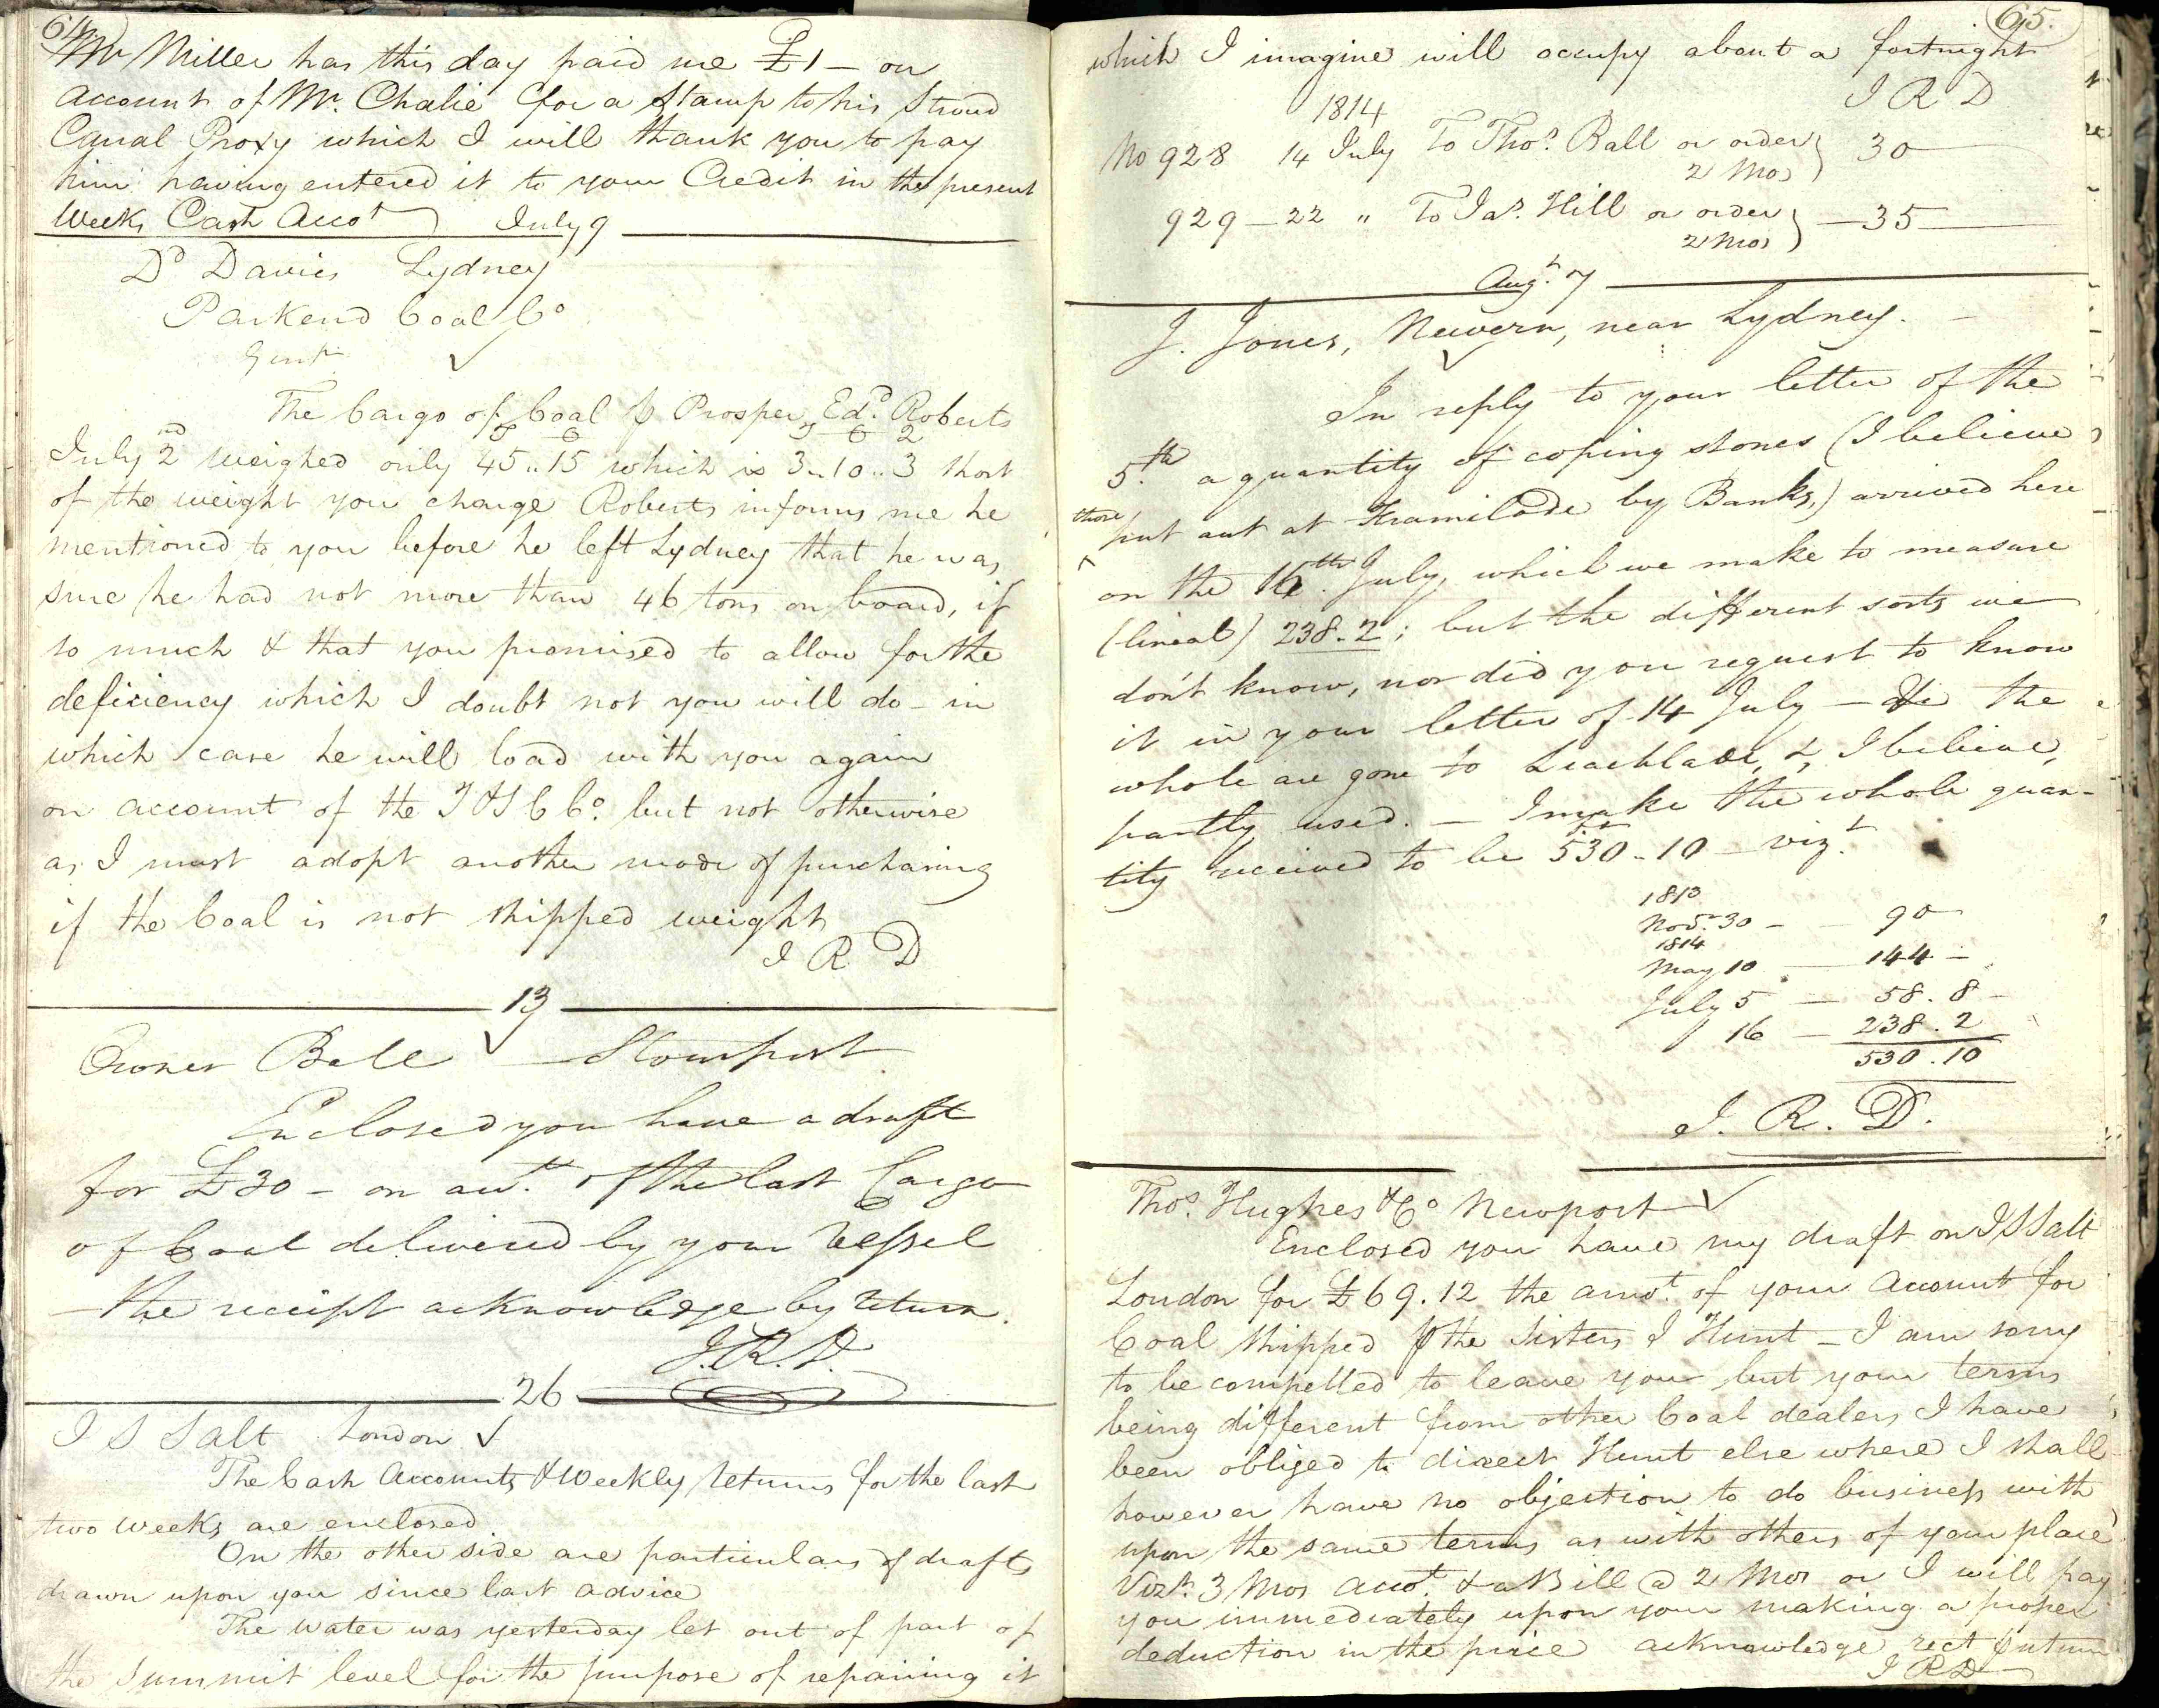 64
Mr Miller has this day paid me £1 - on
account of Mr. Chalie for a Stamp to his Stroud
Canal Proxy which I will thank you to pay
him having entered it to your Credit in the present
Weeks Cash Acct July 9
Dd Davies Lydney
Parkend Coal Co
Gent
The Cargo of Coal p Prosper, Edd. Roberts
July 2nd weighed only 45.. 15 which is 3.. 10.. 3 short
of the weight you charge Roberts informs me he
mentioned to you before he left Lydney that he was
sure he had not more than 46 tons on board, if
so much & that you promised to allow for the
deficiency which I doubt not you will do - in
which case he will load with you again
on account of the T & S C Co. but not otherwise
as I must adopt another mode of purchasing
if the Coal is not shipped weight
I R D
13
Owner Ball Stourport
Enclosed you have a draft
for £30 - on acct. of the last Cargo
of Coal delivered by your Vessel
- the receipt acknowledge by return.
J.R.D.
26
I S Salt London
The Cash Accounts & Weekly returns for the last
two weeks are enclosed
On the other side are particulars of drafts
drawn upon you since last advice
The water was yesterday let out of part of
the Summit level for the purpose of repairing it
65.
which I imagine will occupy about a fortnight
I R D
1814
No 928 14 July To Thos. Ball or order 30
2 Mos
929 - 22 " To Jas. Hill or order - 35
2 Mos
Augt. 7
J. Jones, Newern, near Lydney. -
In reply to your letter of the
5th. a quantity of coping stones (I believe
those put out at Framilode by Banks,) arrived here
on the 16th. July, which we make to measure
(lineal) 238.2; but the different sorts we
don't know, nor did you request to know
it in your letter of 14 July - the
whole are gone to Leachlade, &, I believe,
partly used. - I make the whole quan-
tity received to be 530 .. 10 - vizt.
1813
Novr. 30 - - 90
1814
May 10 - 144 -
July 5 - 58. 8 -
16 - 238. 2
530. 10
J. R. D.
Thos. Hughes & Co Newport
Enclosed you have my draft on I S Salt
London for £69. 12 the amot. of your Account for
Coal shipped p the Sisters I Hunt - I am sorry
to be compelled to leave you but your terms
being different from other Coal dealers I have
been obliged to direct Hunt else where I shall
however have no objection to do business with
upon the same terms as with others of your place
Vizt. 3 Mos Accot. & a Bill @ 2 Mos or I will pay
you immediately upon your making a proper
deduction in the price acknowledge rect p return
I R D